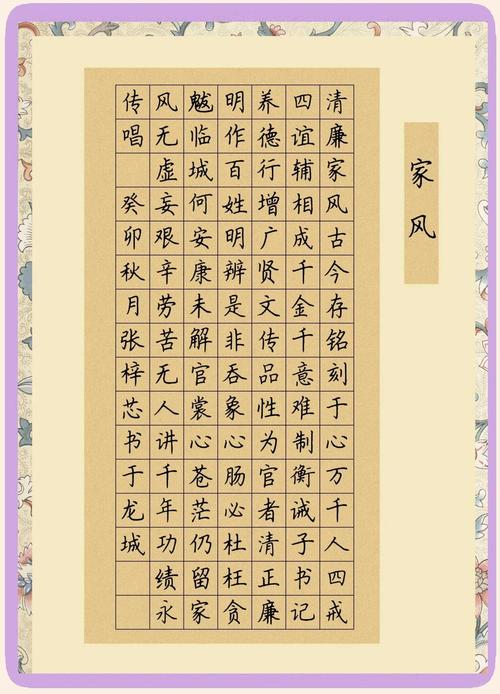 家风
清廉家风古今存铭刻于心万千人四戒
四谊辅相成千金千意难制衡诫子书记
养德行增广贤文传品性为官者清正廉
明作百姓明辨是非吞象心肠必杜枉贪
魃临城何安康未解官裳心苍茫仍留家
风无虚妄艰辛劳苦无人讲千年功绩永
传唱 癸卯秋月张梓芯书于龙城